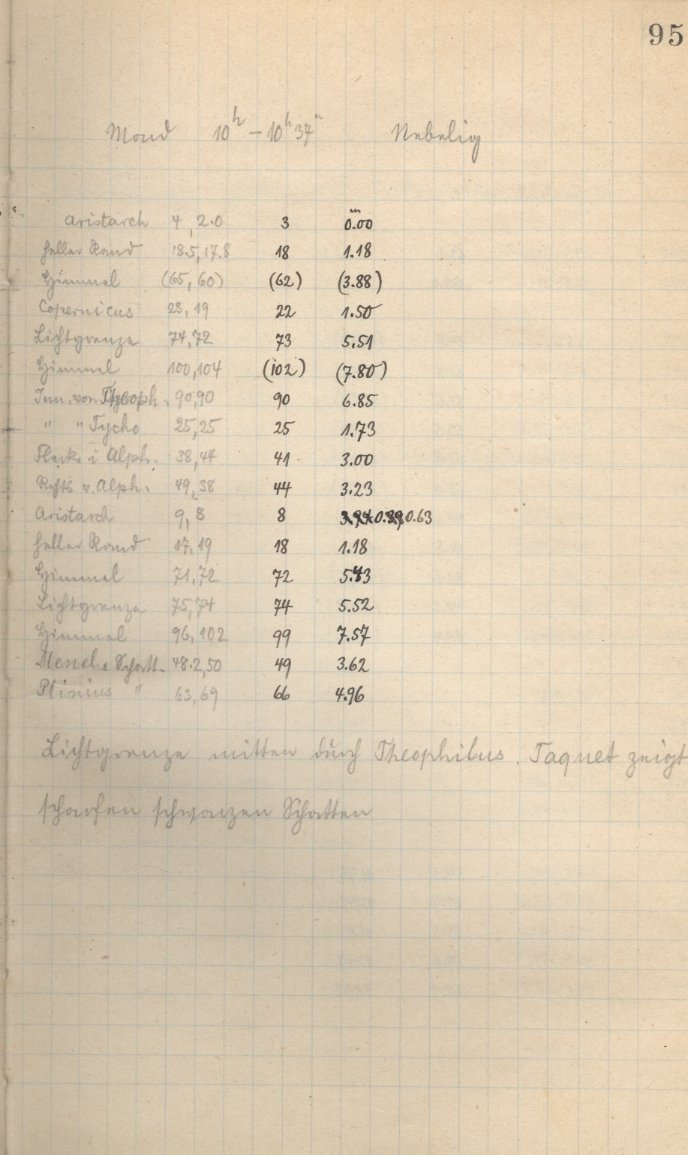 95
Mond 10h – 10h 37m Nebelig
Aristarch 4, 2.0 3 0.00 m
heller Rand 18.5, 17.8 18 1.18
Himmel (65, 60) (62) (3.88)
Copernicus 23, 19 22 1.50
Lichtgrenze 74, 72 73 5.51
Himmel 100, 104 (102) (7.80)
Inn. von Theoph. 90, 90 90 6.85
" " Tycho 25, 25 25 1.73
Fleck i Alph. 38, 44 41 3.00
Rechts v. Alph. 49, 38 44 3.23
Aristarch 9, 8 8 0.63
heller Rand 17, 19 18 1.18
Himmel 71, 72 72
Lichtgrenze 75, 74 74 5.52
Himmel 96, 102 99 7.57
Menel. Schatt. 48.2, 50 49 3.62
Plinius " 63, 69 66 4.96
Lichtgrenze mitten durch Theophilus. Taquet zeigt
scharfen schwarzen Schatten